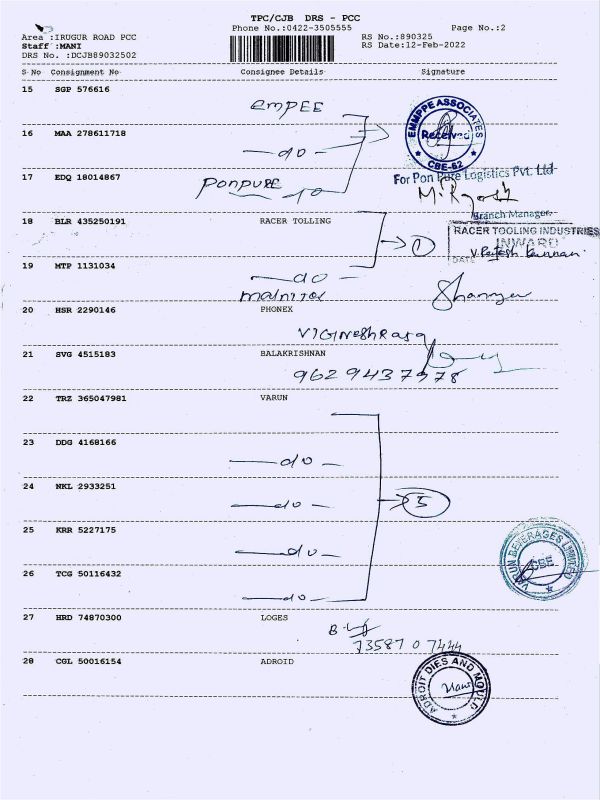 TPC/CJB DRS - PCC
Phone No.:0422-3505555 Page No.:2
Area :IRUGUR ROAD PCC RS No.:890325
Staff :MANI RS Date:12-Feb-2022
DRS No. :DCJB89032502
S No Consignment No Consignee Details Signature
15 SGP 576616
EMPEE
EMMPPE ASSOCIATES
Received
CBE-62
16 MAA 278611718
do
17 EDQ 18014867
PONPURE do
For Pon Pure Logistics Pvt. Ltd
Branch Manager
18 BLR 435250191 RACER TOLLING
1
RACER TOOLING INDUSTRIES
INWARD
DATE
19 MTP 1131034
do
20 HSR 2290146 PHONEX
21 SVG 4515183 BALAKRISHNAN
9629437978
22 TRZ 365047981 VARUN
23 DDG 4168166
do
24 NKL 2933251
do
5
25 KRR 5227175
do
26 TCG 50116432
do
VARUN BEVERAGES LIMITED
CBE
27 HRD 74870300 LOGES
73587 0 7444
28 CGL 50016154 ADROID
ADROIT DIES AND MOULD